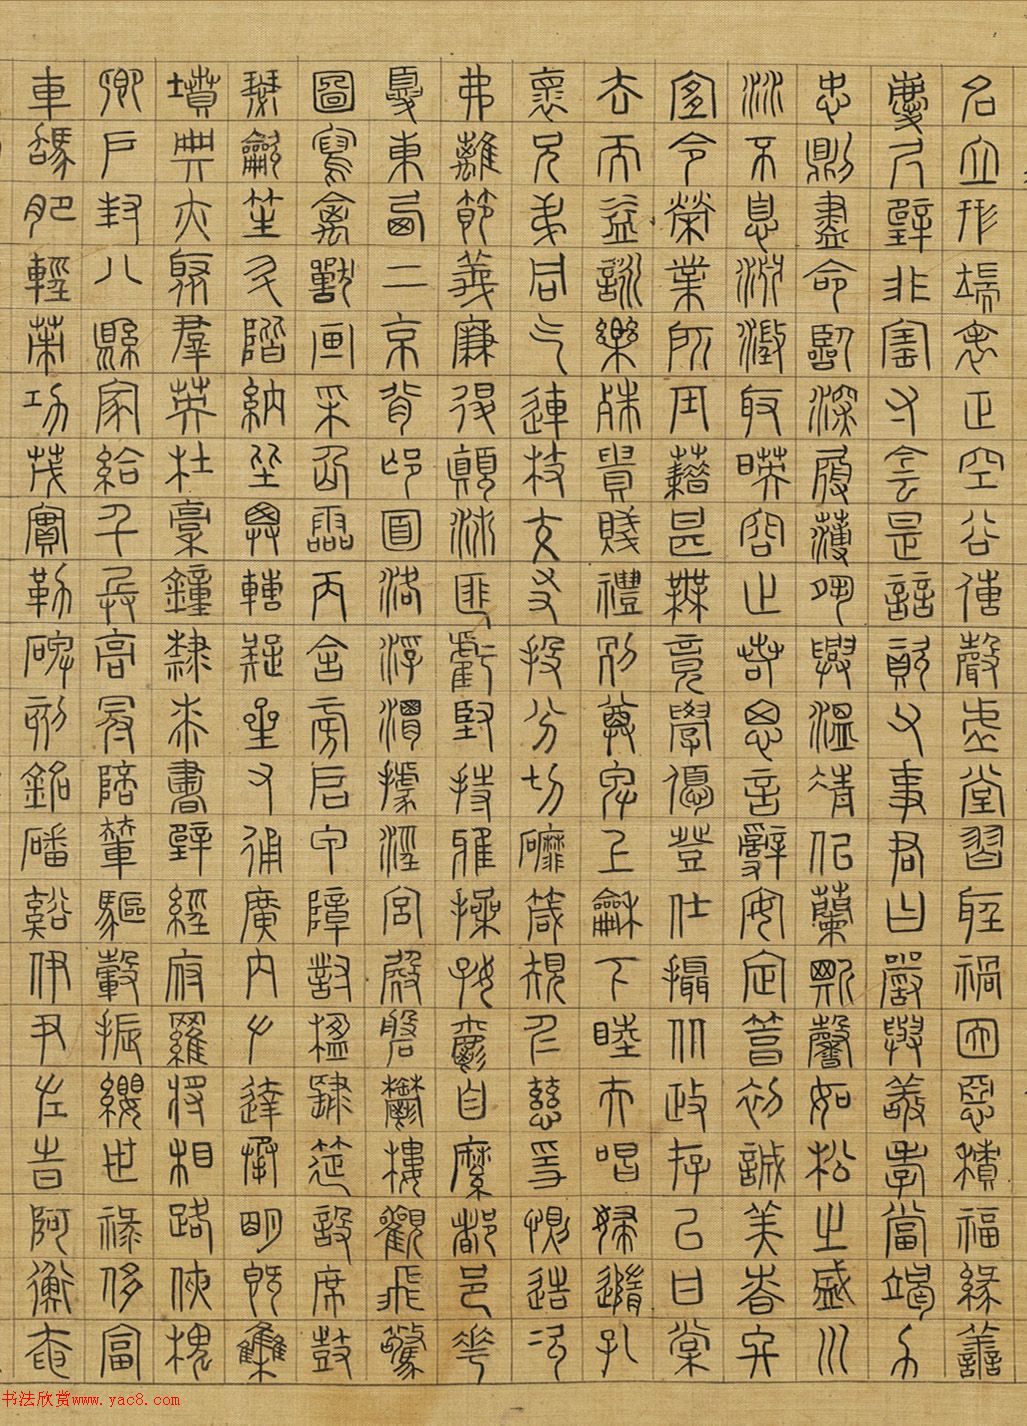 名立形端表正空谷傳聲虛堂習聽禍因惡積福緣善
慶尺璧非寶寸陰是競資父事君曰嚴與敬孝當竭力
忠則盡命臨深履薄夙興溫凊似蘭斯馨如松之盛川
流不息淵澄取映容止若思言辭安定篤初誠美慎終
宜令榮業所基籍甚無竟學優登仕攝從政存以甘棠
去而益詠樂殊貴賤禮別尊卑上和下睦夫唱婦隨孔
懷兄弟同氣連枝交友投分切磨箴規仁慈隱惻造次
弗離節義廉退顛沛匪虧堅持雅操好爵自縻都邑華
夏東西二京背邙面洛浮渭據涇宮殿盤鬱樓觀飛驚
圖寫禽獸畫彩仙靈丙舍傍啟甲帳對楹肆筵設席鼓
瑟吹笙升階納陛弁轉疑星右通廣內左達承明既集
墳典亦聚群英杜稾鐘隸漆書壁經府羅將相路俠槐
卿戶封八縣家給千兵高冠陪輦驅轂振纓世祿侈富
車駕肥輕策功茂實勒碑刻銘磻谿伊尹佐時阿衡奄
书法欣赏www.yac8.com